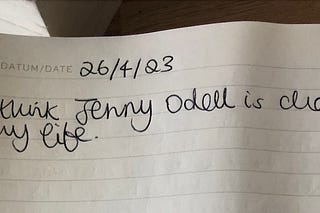 DATUM/DATE 26/4/23
think Jenny Odell is
my life.